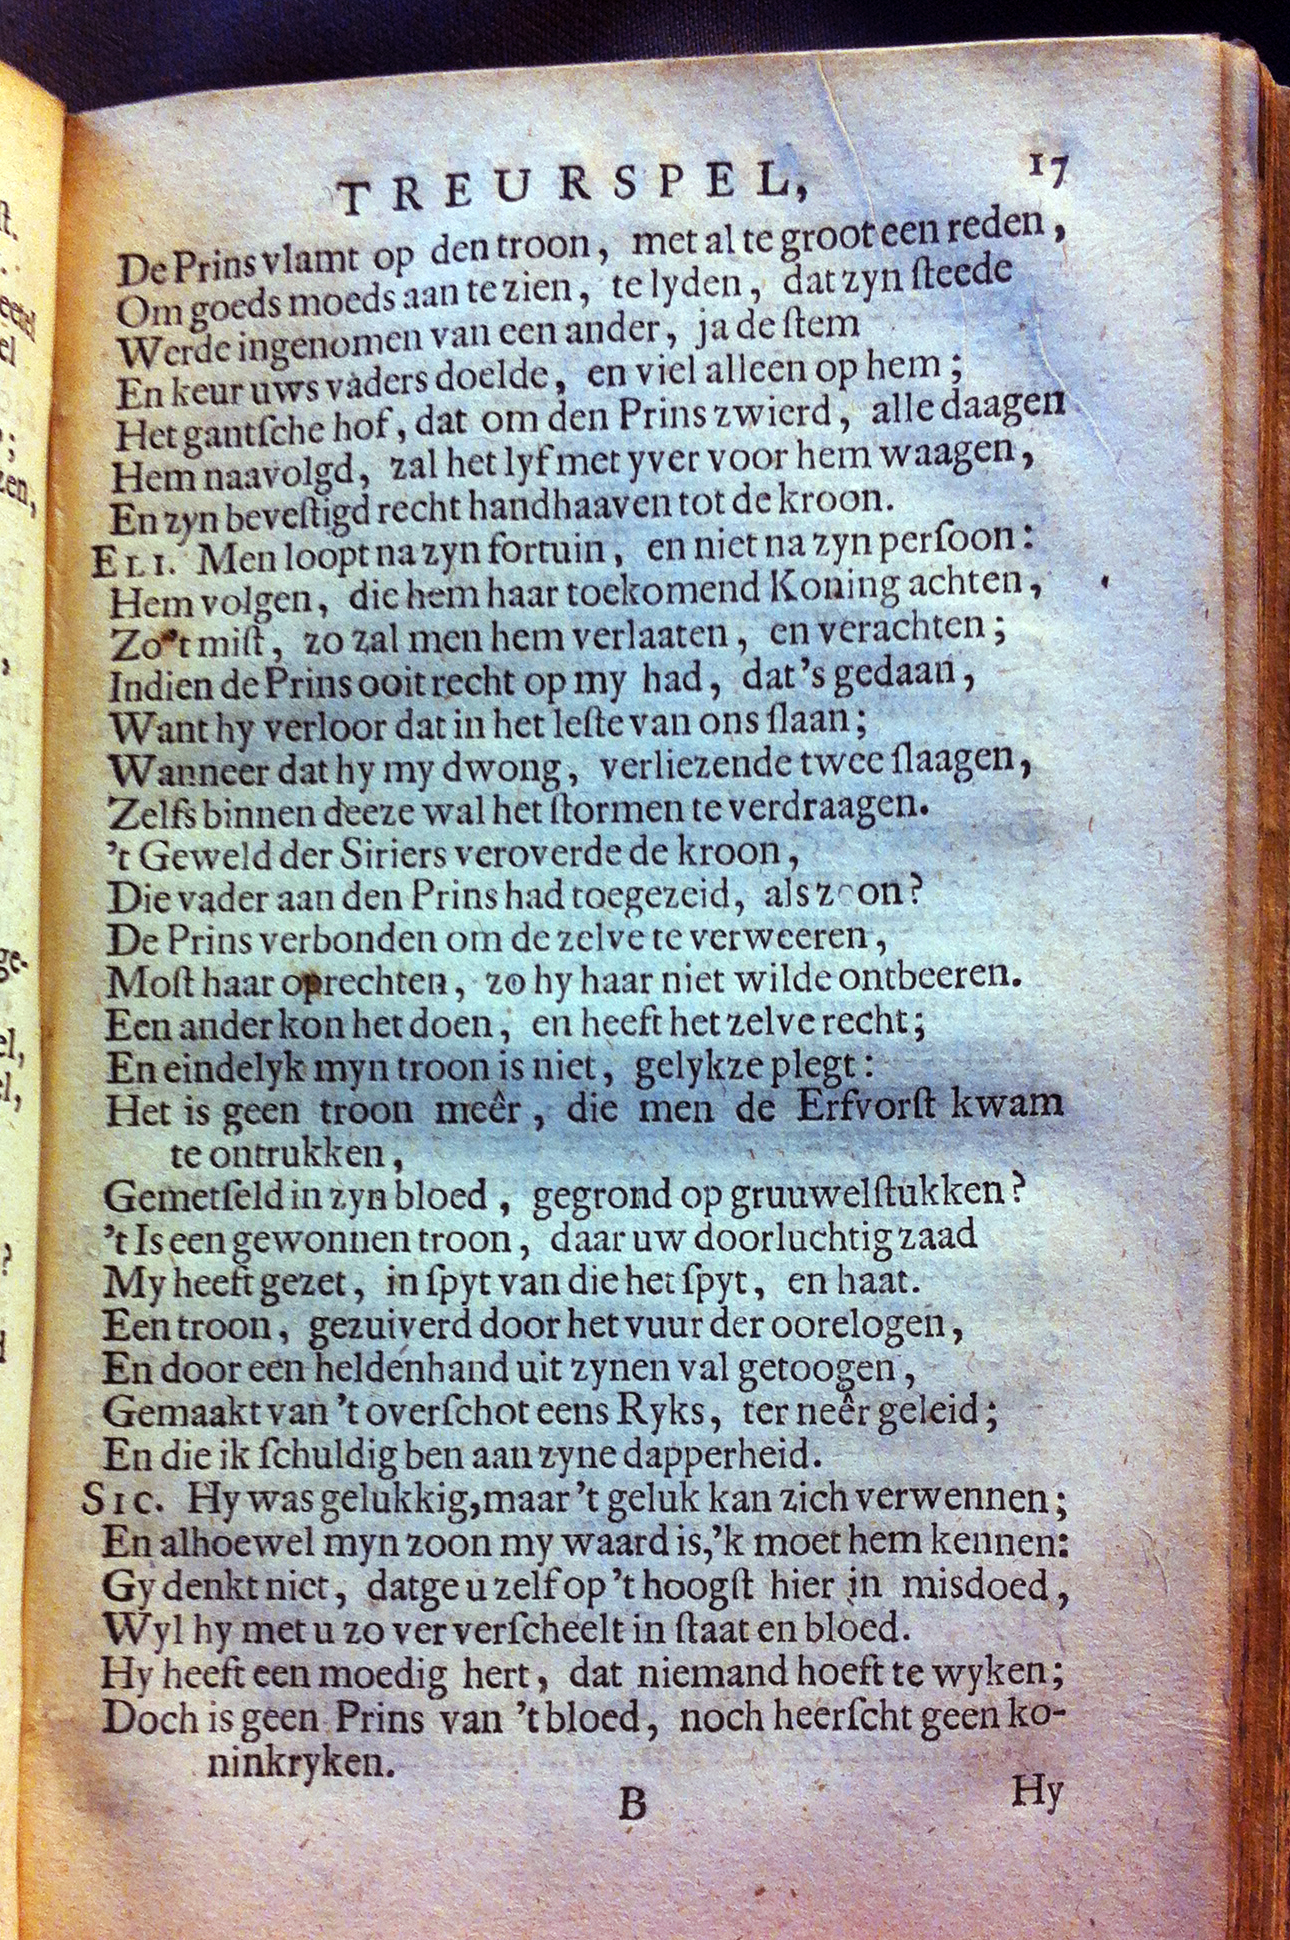 TREURSPEL, 17
De Prins vlamt op den troon, met al te groot een reden,
Om goeds moeds aan te zien, te lyden, dat zyn ſteede
Werde ingenomen van een ander, ja de ſtem
En keur uws vaders doelde, en viel alleen op hem;
Het gantſche hof, dat om den Prins zwierd, alle daagen
Hem naavolgd, zal het lyf met yver voor hem waagen,
En zyn beveſtigd recht handhaaven tot de kroon.
ELI. Men loopt na zyn fortuin, en niet na zyn perſoon:
Hem volgen, die hem haar toekomend Koning achten,
Zo 't miſt, zo zal men hem verlaaten, en verachten;
Indien de Prins ooit recht op my had, dat's gedaan,
Want hy verloor dat in het leſte van ons ſlaan;
Wanneer dat hy my dwong, verliezende twee ſlaagen,
Zelfs binnen deeze wal het ſtormen te verdraagen.
't Geweld der Siriers veroverde de kroon,
Die vader aan den Prins had toegezeid, als zoon?
De Prins verbonden om de zelve te verweeren,
Moſt haar oprechten, zo hy haar niet wilde ontbeeren.
Een ander kon het doen, en heeft het zelve recht;
En eindelyk myn troon is niet, gelyk ze plegt:
Het is geen troon meêr, die men de Erfvorſt kwam
te ontrukken,
Gemetſeld in zyn bloed, gegrond op gruuwelſtukken?
't Is een gewonnen troon, daar uw doorluchtig zaad
My heeft gezet, in ſpyt van die het ſpyt, en haat.
Een troon, gezuiverd door het vuur der oorelogen,
En door een heldenhand uit zynen val getoogen,
Gemaakt van 't overſchot eens Ryks, ter neêr geleid;
En die ik ſchuldig ben aan zyne dapperheid.
SIC. Hy was gelukkig, maar 't geluk kan zich verwennen;
En alhoewel myn zoon my waard is, 'k moet hem kennen:
Gy denkt niet, dat ge u zelf op 't hoogſt hier in misdoed,
Wyl hy met u zo ver verſcheelt in ſtaat en bloed.
Hy heeft een moedig hert, dat niemand hoeft te wyken;
Doch is geen Prins van 't bloed, noch heerſcht geen ko-
ninkryken.
B Hy